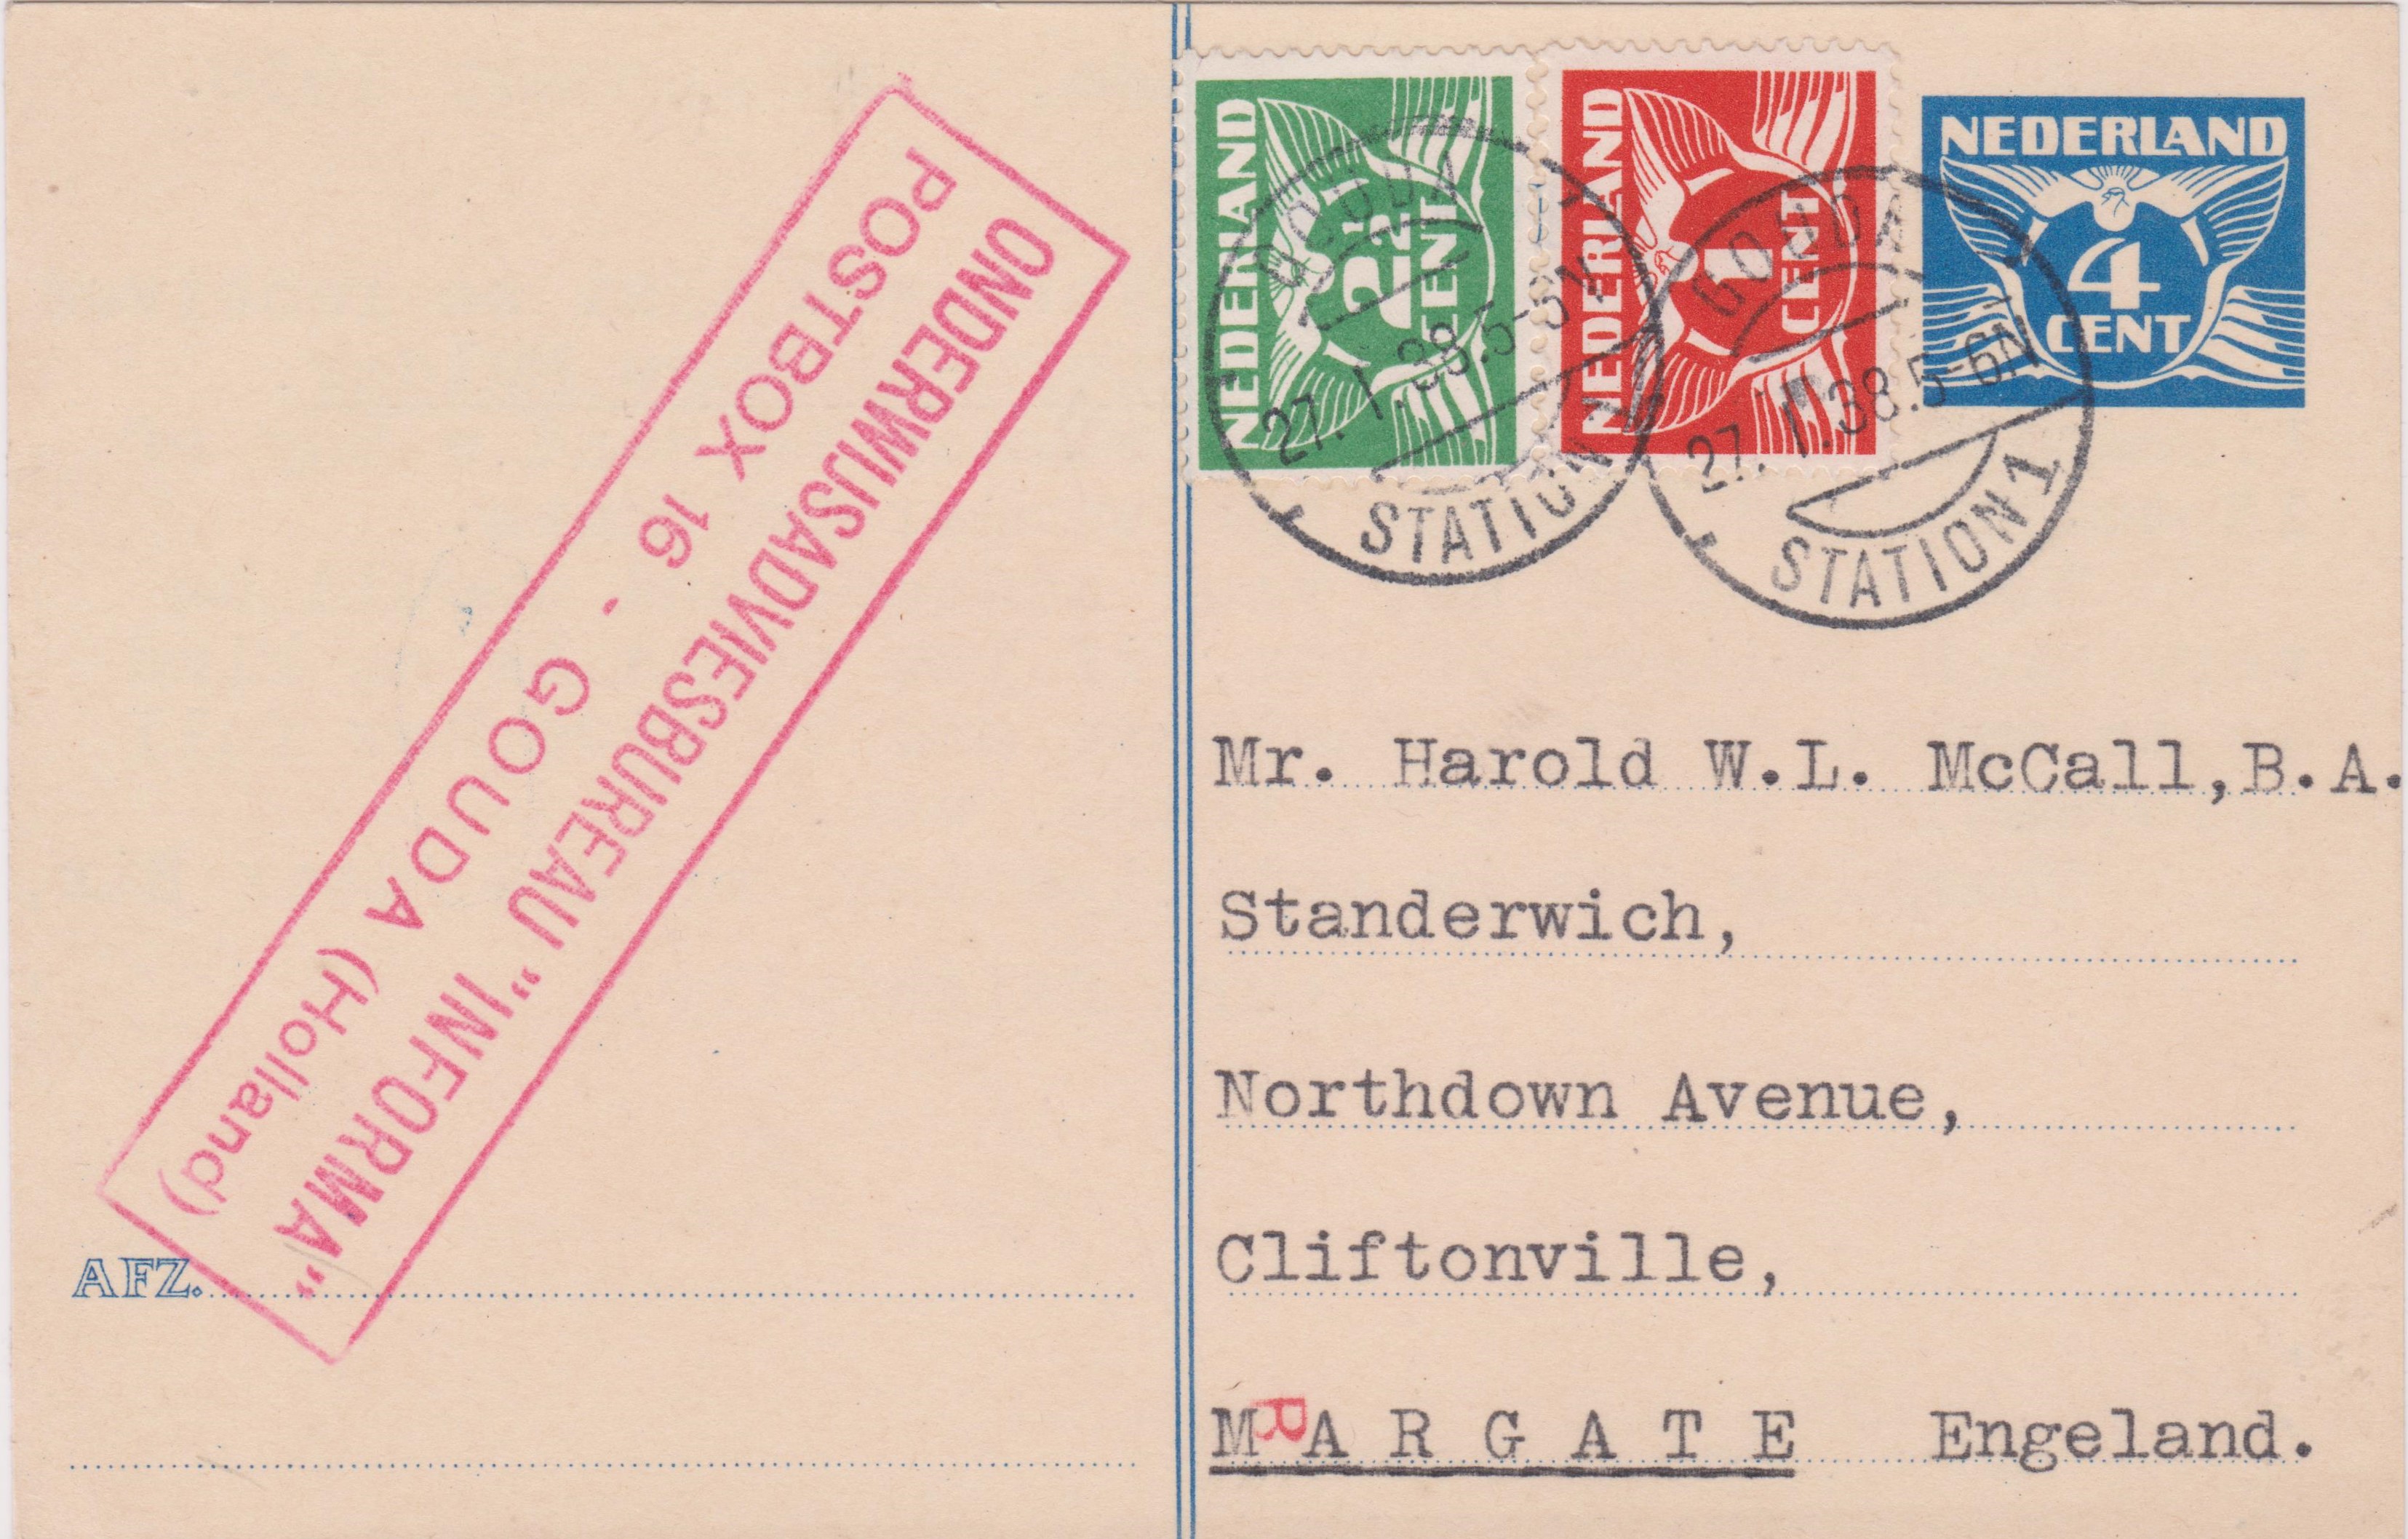 ONDERWIJSADVIESBUREAU "INFORMA"
POSTBOX 16 - GOUDA (Holland)
AFZ.
NEDERLAND
2½
CENT
NEDERLAND
1
CENT
NEDERLAND
4
CENT
GOUDA
27.I.38.5-6N
STATION
GOUDA
27.I.38.5-6N
STATION 1
Mr. Harold W.L. McCall,B.A.
Standerwich,
Northdown Avenue,
Cliftonville,
MARGATE Engeland.
R